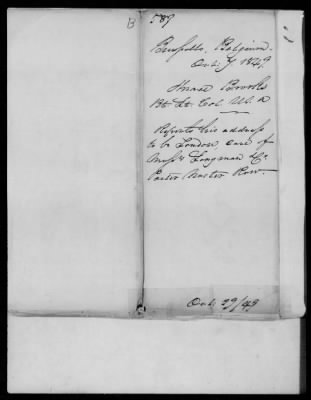 B
589
Brussells, Belgium.
Oct: 7 1849.
Horace Brooks
Bt. Lt. Col. U.S.A
Reports his address
to be London, care of
Messrs Longman & Co
Pater Noster Row.
Oct: 29/49